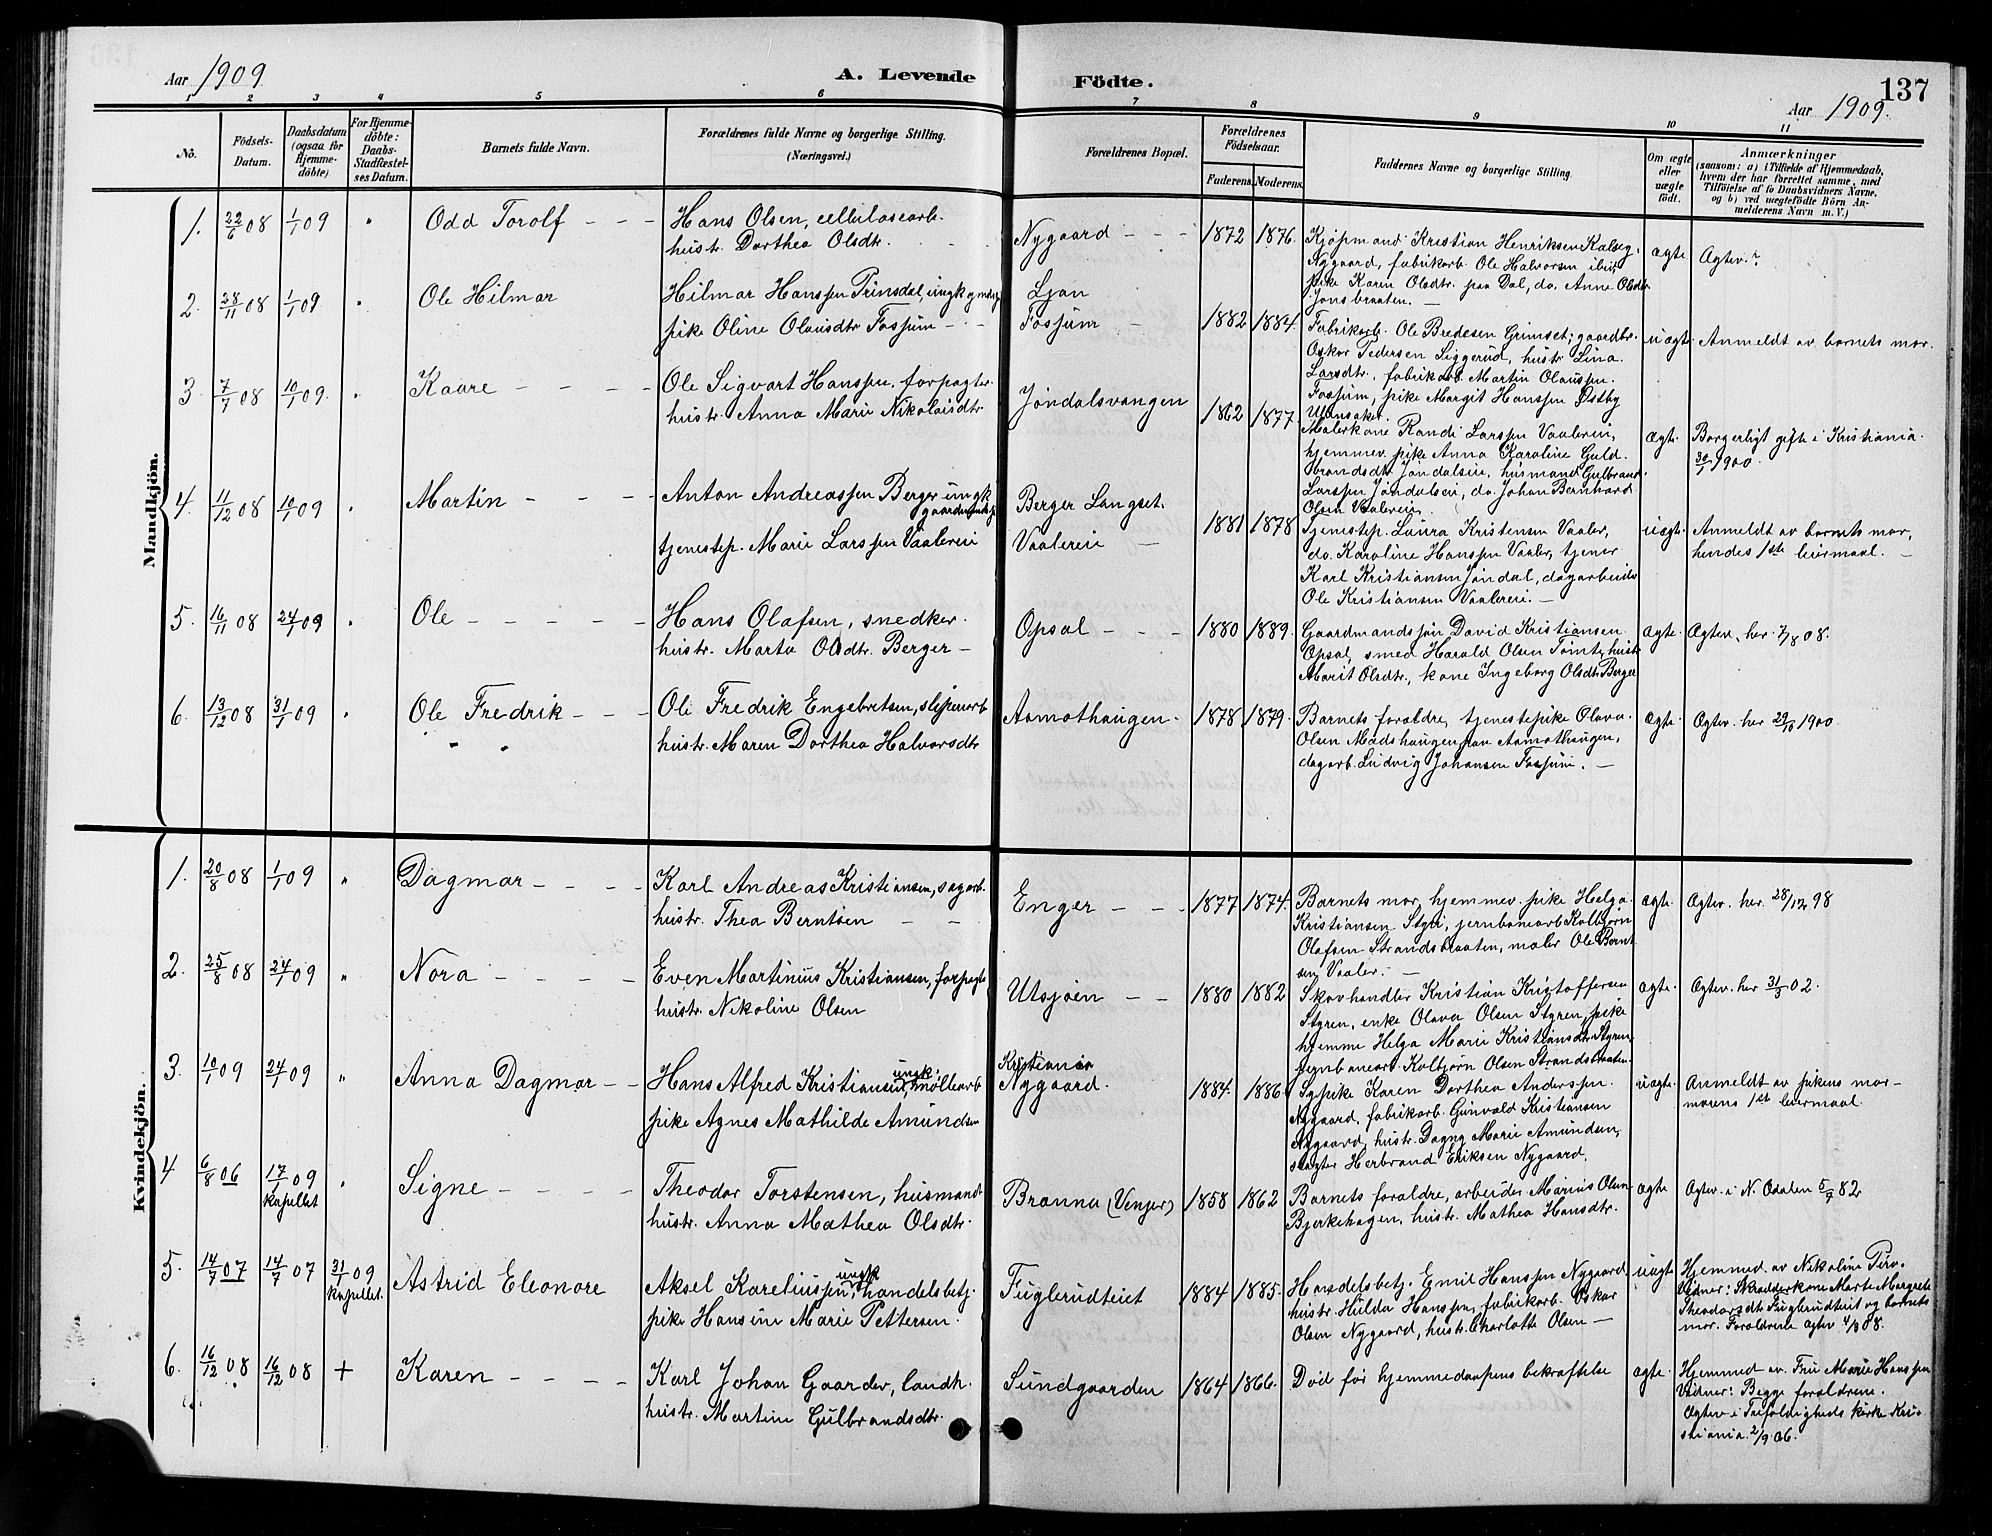 Aar 1909
A. Levende Födte.
137
Aar 1909.
1 2 3 4 5 6 7 8 9 10 11
No.
Födsels-
Datum.
Daabsdatum
(ogsaa for
Hjemme-
döbte)
For Hjemme-
döbte:
Daabs-
Stadfæstel-
ses Datum.
Barnets fulde Navn.
Forældrenes fulde Navne og borgerlige Stilling.
(Næringsvei.)
Forældrenes Bopæl.
Forældrenes
Födselsaar.
Faderens. Moderens.
Faddernes Navne og borgerlige Stilling.
Om ægte
eller
uægte
født.
Anmærkninger
(saasom: a) i Tilfælde af Hjemmedaab,
hvem der har forrettet samme, med
Tilföielse af to Daabsvidners Navne,
og b) ved uægtefödte Börn An-
melderens Navn m. V.)
Mandkjön.
1. 22/6 08 1/1 09 " Odd Torolf
Hans Olsen, cellulosearb.
hustr. Dorthea Olsdtr.
Nygaard 1872 1876.
Kjøpmand Kristian Henriksen Kalseg,
Nygaard, fabrikarb. Ole Halvorsen ibid,
pike Karen Olsdtr. paa Dal, do. Anne Olsdtr.
Jonsbraaten.
ægte Ægtev.?
2. 28/11 08 1/1 09 " Ole Hilmar
Hilmar Hanssen Prinsdal, ungk. gmdsj.
pike Oline Olausdtr Fossum
Ljan
Fossum 1882 1884.
Fabrikarb. Ole Bredesen Grimset, gaardbr.
Oskar Pedersen Siggerud, hustr. Lina
Larsdtr., fabrikarb. Martin Olaussen
Fossum, pike Margit Hanssen Østby
Ullensaker.
uægte. Anmeldt av barnets mor.
3. 7/1 08 10/1 09. " Kaare
Ole Sigvart Hanssen, forpagter.
hustr. Anna Marie Nikolaisdtr
Jøndalsvangen 1862 1877.
Malerkone Randi Larssen Vaalerei,
hjemmev. pike Anna Karoline Guld-
brandsdtr Jøndalseie, husmand Gulbrand
Larssen Jøndalseie, do. Johan Bernhard
Olsen Vaalereie.
ægte. Borgerligt gifte i Kristiania
30/1 1900.
4. 11/12 08 10/1 09 " Martin
Anton Andreassen Berger ungk.
gaardmandsj.
tjenestep. Marie Larssen Vaalereie
Berger Langset.
Vaalereie 1881 1878
Tjenestep. Laura Kristensen Vaaler,
do. Karoline Hanssen Vaaler, tjener
Karl Kristiansen Jøndal, dagarbeider
Ole Kristiansen Vaalereie.
uægte. Anmeldt av barnets mor,
hendes 1ste leiermaal.
5. 16/11 08 24/1 09 " Ole
Hans Olafsen, snedker.
hustr. Marta Olsdtr. Berger
Opsal 1880 1889.
Gaardmandssøn David Kristiansen
Opsal, smed Harald Olsen Tømte, hustr.
Marit Olsdtr., kone Ingeborg Olsdtr Berger
ægte. Ægtev. her 7/8 08.
6. 13/12 08 31/1 09 " Ole Fredrik
Ole Fredrik Engebretsen, sliperiarb
hustr. Maren Dorthea Halvorsdtr
Aamothaugen. 1878 1879.
Barnets forældre, tjenestepike Olava
Olsen Madshaugen paa Aamothaugen,
dagarb. Ludvig Johansen Fossum.
ægte. Ægtev. her 29/10 1900
Kvindekjön.
1. 20/8 08 1/1 09 " Dagmar
Karl Andreas Kristiansen, sagarb.
hustr. Thea Berntsen
Enger 1877 1874.
Barnets mor, hjemmev. pike Helga
Kristiansen Styri, jernbanearb Kolbjørn
Olafsen Strandsbraaten, maler Ole Bernt-
sen Vaaler.
ægte. Ægtev. her. 28/12 98
2. 25/8 08 24/1 09 " Nora
Even Martinius Kristiansen, forpagter
hustr. Nikoline Olsen
Utsjøen 1880 1882
Skovhandler Kristian Kristoffersen
Styren, enke Olava Olsen Styren, pike
hjemme Helga Marie Kristiansdtr Styren,
jernbanearb. Kolbjørn Olsen Strandsbraaten
ægte. Ægtev. her 31/3 02.
3. 10/1 09 24/1 09 " Anna Dagmar
Hans Alfred Kristiansen, ungk. møllearb
pike Agnes Mathilde Amundsen
Kristiania
Nygaard. 1884. 1886.
Sypike Karen Dorthea Anderssen
Nygaard, fabrikarb. Gunvald Kristiansen
Nygaard, hustr. Dagny Marie Amundsen,
slagter Herbrand Eriksen Nygaard.
uægte. Anmeldt av pikens mor-
morens 1ste leiermaal.
4 6/8 06 17/1 09
kapellet " Signe
Theodor Torstensen, husmand
hustr. Anna Mathea Olsdtr.
Branna (Venjer) 1858 1862
Barnets forældre, arbeider Marius Olsen
Bjerkehagen, hustr. Mathea Hansdtr.
ægte Ægtev. i N. Odalen 5/5 82
5. 14/7 07 14/7 07 31/1 09
kapellet. Astrid Eleonore
Aksel Kareliussen, ungk. handelsbetj.
pike Hansine Marie Pettersen.
Fuglerudteiet 1884 1885.
Handelsbetj. Emil Hanssen Nygaard
hustr. Hulda Hanssen, fabrikarb. Oskar
Olsen Nygaard, hustr. Charlotte Olsen
uægte Hjemmed. av Nikoline
Vidner: Skrædderkone Marte Margrete
Theodorsdtr Fuglerudteiet og barnets
mor. Forældrene ægtev 4/9 08.
6. 16/12 08 16/12 08 + Karen
Karl Johan Gaarder, landh.
hustr. Martine Gulbrandsdtr.
Sundgaarden 1864 1866.
Død før hjemmedaapens bekræftelse
ægte. Hjemmed av. Fru Marie Hanssen
Vidner: Begge forældrene.
Ægtev i Trefoldigheds kirke Kri-
stiania. 2/9 06.